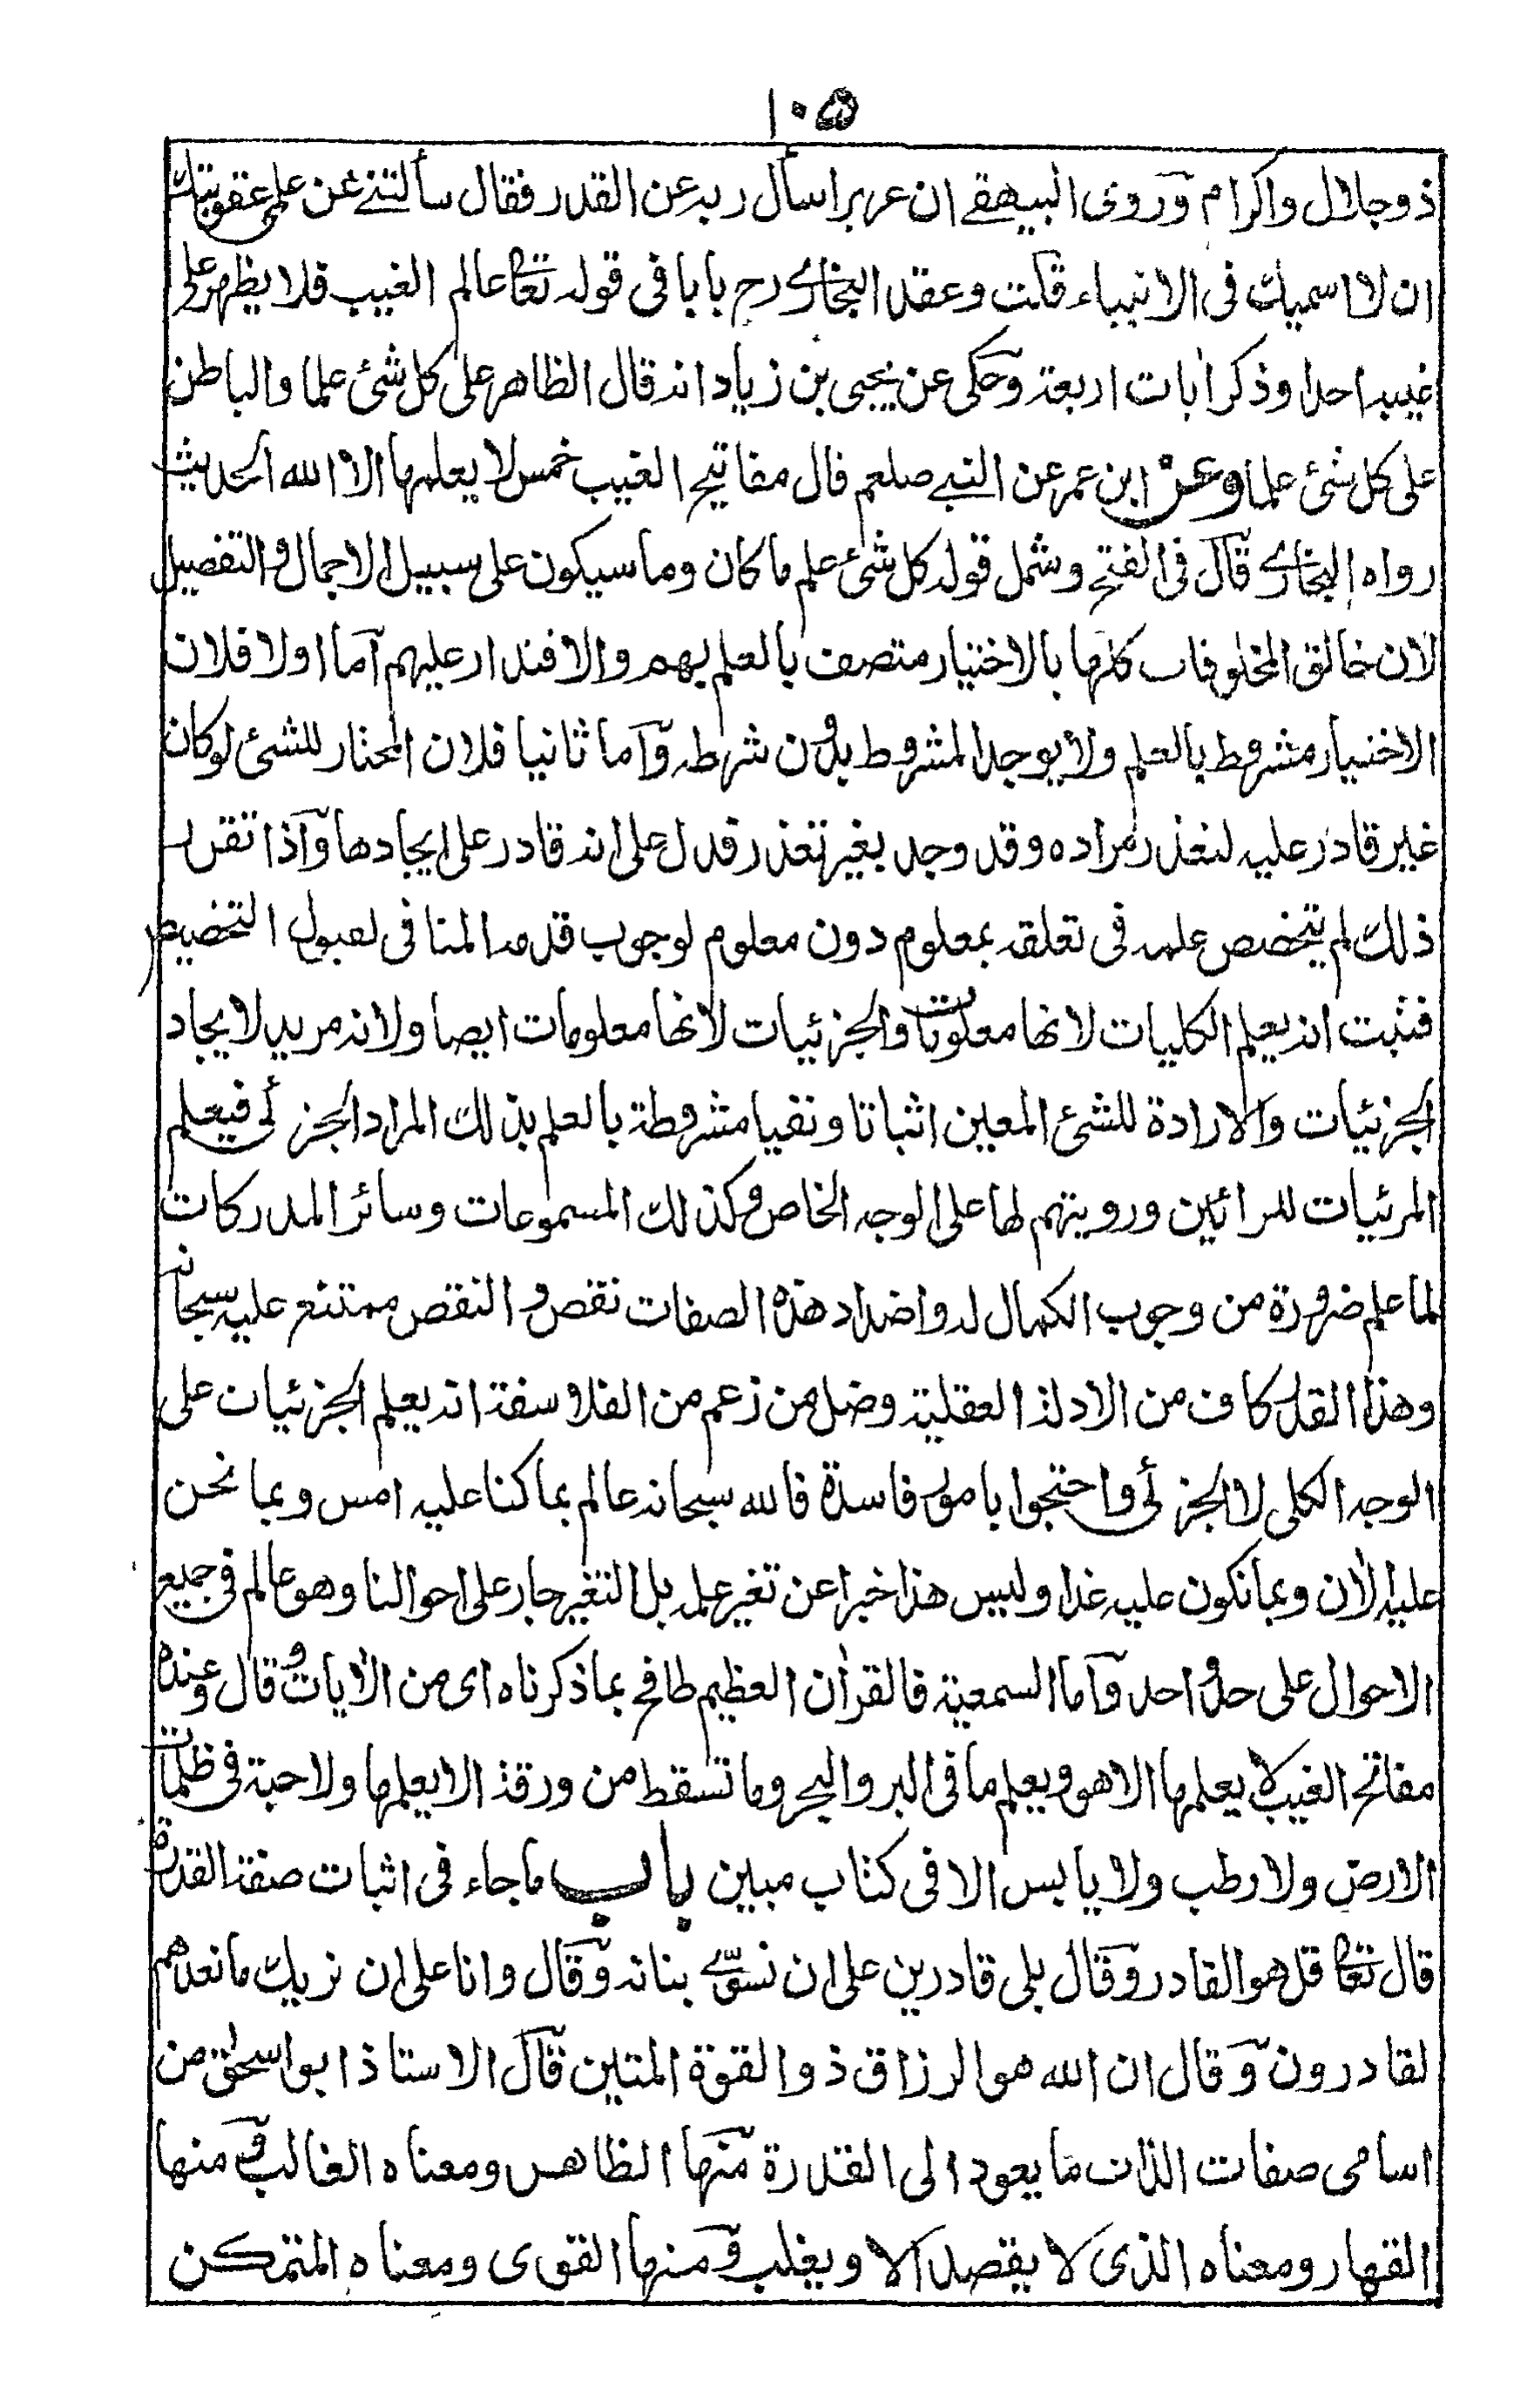 ١٠٥
ذو جلال واكرام وروى البيهقي ان عزيرا سأل ربه عن القدر فقال سألتني عن علمي عقوبتك
ان لا اسميك في الانبياء قلت وعقد البخاري رح بابا في قوله تعا عالم الغيب فلا يظهر على
غيبه احدا وذكر ايات اربعة وحكى عن يحيى بن زياد انه قال الظاهر على كل شئ علما والباطن
على كل شئ علما وعن ابن عمر عن النبي صلعم قال مفاتيح الغيب خمس لا يعلمها الا الله الحديث
رواه البخاري قال في الفتح وشمل قوله كل شئ علم ما كان وما سيكون على سبيل الاجمال والتفصيل
لان خالق المخلوقات كلها بالاختيار متصف بالعلم بهم والاقتدار عليهم اما اولا فلان
الاختيار مشروط بالعلم ولا يوجد المشروط بدون شرطه واما ثانيا فلان المختار للشئ لو كان
غير قادر عليه لتعذر مراده وقد وجد بغير تعذر فدل على انه قادر على ايجادها واذا تقرر
ذلك لم يتخصص علمه في تعلقه بمعلوم دون معلوم لوجوب قدمه المنافى لقبول التخصيص
فثبت انه يعلم الكليات لانها معلومات والجزئيات لانها معلومات ايضا ولانه مريد لايجاد
الجزئيات والارادة للشئ المعين اثباتا ونفيا مشروطة بالعلم بذلك المراد الجزئى فيعلم
المرئيات للرائين ورويتهم لها على الوجه الخاص وكذلك المسموعات وسائر المدركات
لما علم ضرورة من وجوب الكمال له واضداد هذه الصفات نقص والنقص ممتنع عليه سبحانه
وهذا القدر كاف من الادلة العقلية وضل من زعم من الفلاسفة انه يعلم الجزئيات على
الوجه الكلى لا الجزئى واحتجوا بامور فاسدة فالله سبحانه عالم بما كنا عليه امس وبما نحن
عليه الآن وبما نكون عليه غدا وليس هذا خبرا عن تغير علمه بل التغير جار على احوالنا وهو عالم في جميع
الاحوال على حد واحد واما السمعية فالقرآن العظيم طافح بما ذكرناه اى من الآيات وقال وعنده
مفاتح الغيب لا يعلمها الا هو ويعلم ما في البر والبحر وما تسقط من ورقة الا يعلمها ولا حبة في ظلمات
الارض ولا رطب ولا يابس الا في كتاب مبين باب ما جاء في اثبات صفة القدرة
قال تعا قل هو القادر وقال بلى قادرين على ان نسوي بنانه وقال وانا على ان نريك ما نعدهم
لقادرون وقال ان الله هو الرزاق ذو القوة المتين قال الاستاذ ابو اسحق من
اسامى صفات الذات ما يعود الى القدرة منها الظاهر ومعناه الغالب ومنها
القهار ومعناه الذى لا يقصد الا ويغلب ومنها القوى ومعناه المتمكن